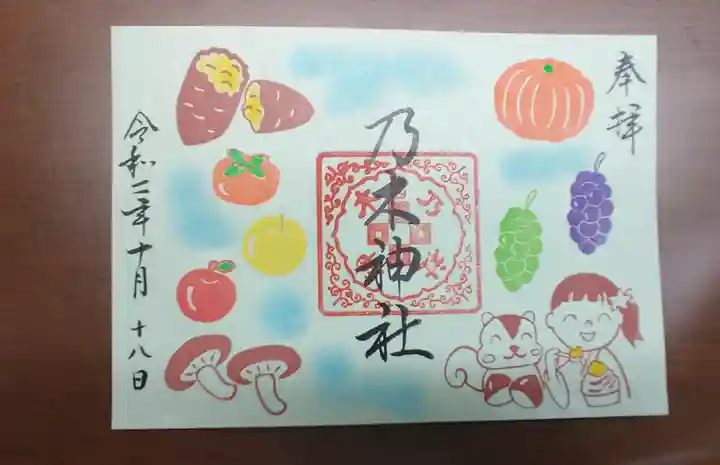 奉拝
乃木神社
令和二年十月十八日